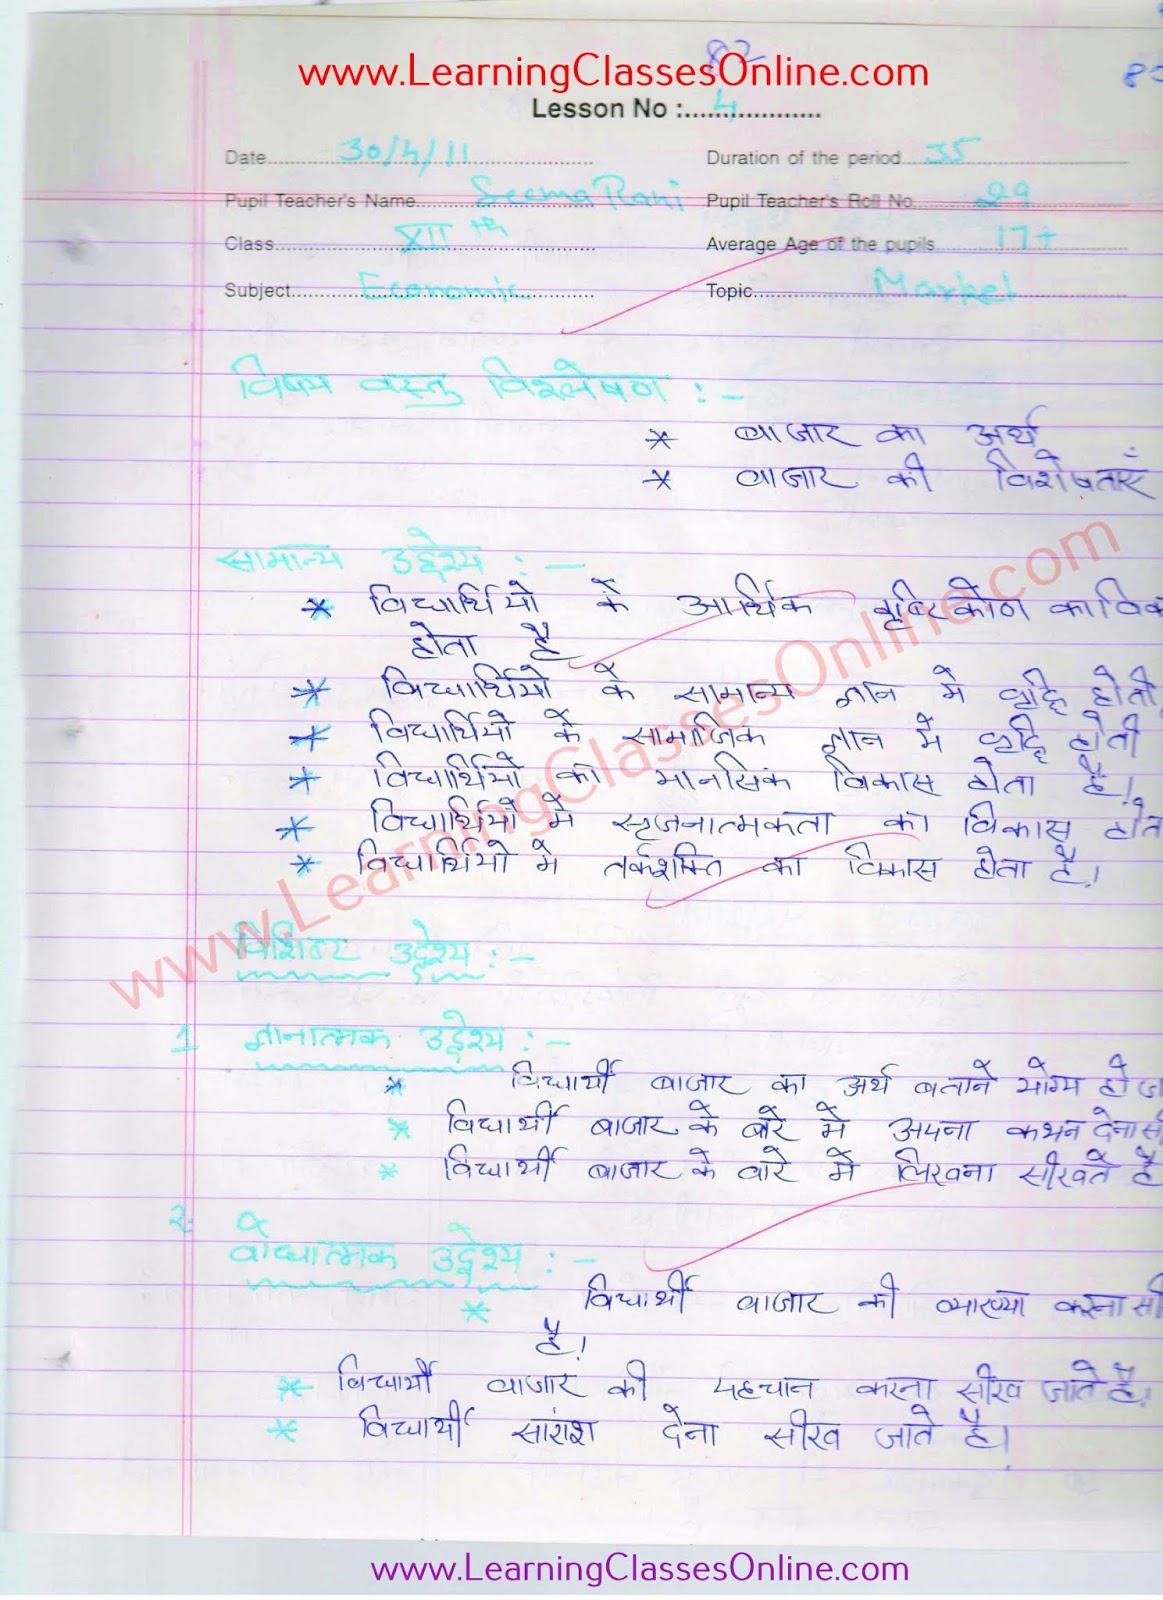 82
80
www.LearningClassesOnline.com
Lesson No :....4....
Date 30/4/11 Duration of the period 35
Pupil Teacher's Name Seema Rani Pupil Teacher's Roll No. 29
Class XII th Average Age of the pupils 17+
Subject Economic Topic Market
विषय वस्तु विश्लेषण :-
* बाजार का अर्थ
* बाजार की विशेषताएँ
सामान्य उद्देश्य :-
* विद्यार्थियो के आर्थिक दृष्टिकोण का विक
होता है
* विद्यार्थियो के सामान्य ज्ञान मे वृद्धि होती
* विद्यार्थियो के सामाजिक ज्ञान मे वृद्धि होती
* विद्यार्थियों का मानसिक विकास होता है।
* विद्यार्थियों मे सृजनात्मकता का विकास होत
* विद्यार्थियो मे तर्कशक्ति का विकास होता है।
विशिष्ट उद्देश्य :-
1 ज्ञानात्मक उद्देश्य :-
* विद्यार्थी बाजार का अर्थ बताने योग्य हो ज
* विद्यार्थी बाजार के बारे मे अपना कथन देना सी
* विद्यार्थी बाजार के बारे में लिखना सीखते है
2. बोधात्मक उद्देश्य :-
* विद्यार्थी बाजार की व्याख्या करना सी
है।
* विद्यार्थी बाजार की पहचान करना सीख जाते है।
* विद्यार्थी सारांश देना सीख जाते है।
www.LearningClassesOnline.com
www.LearningClassesOnline.com